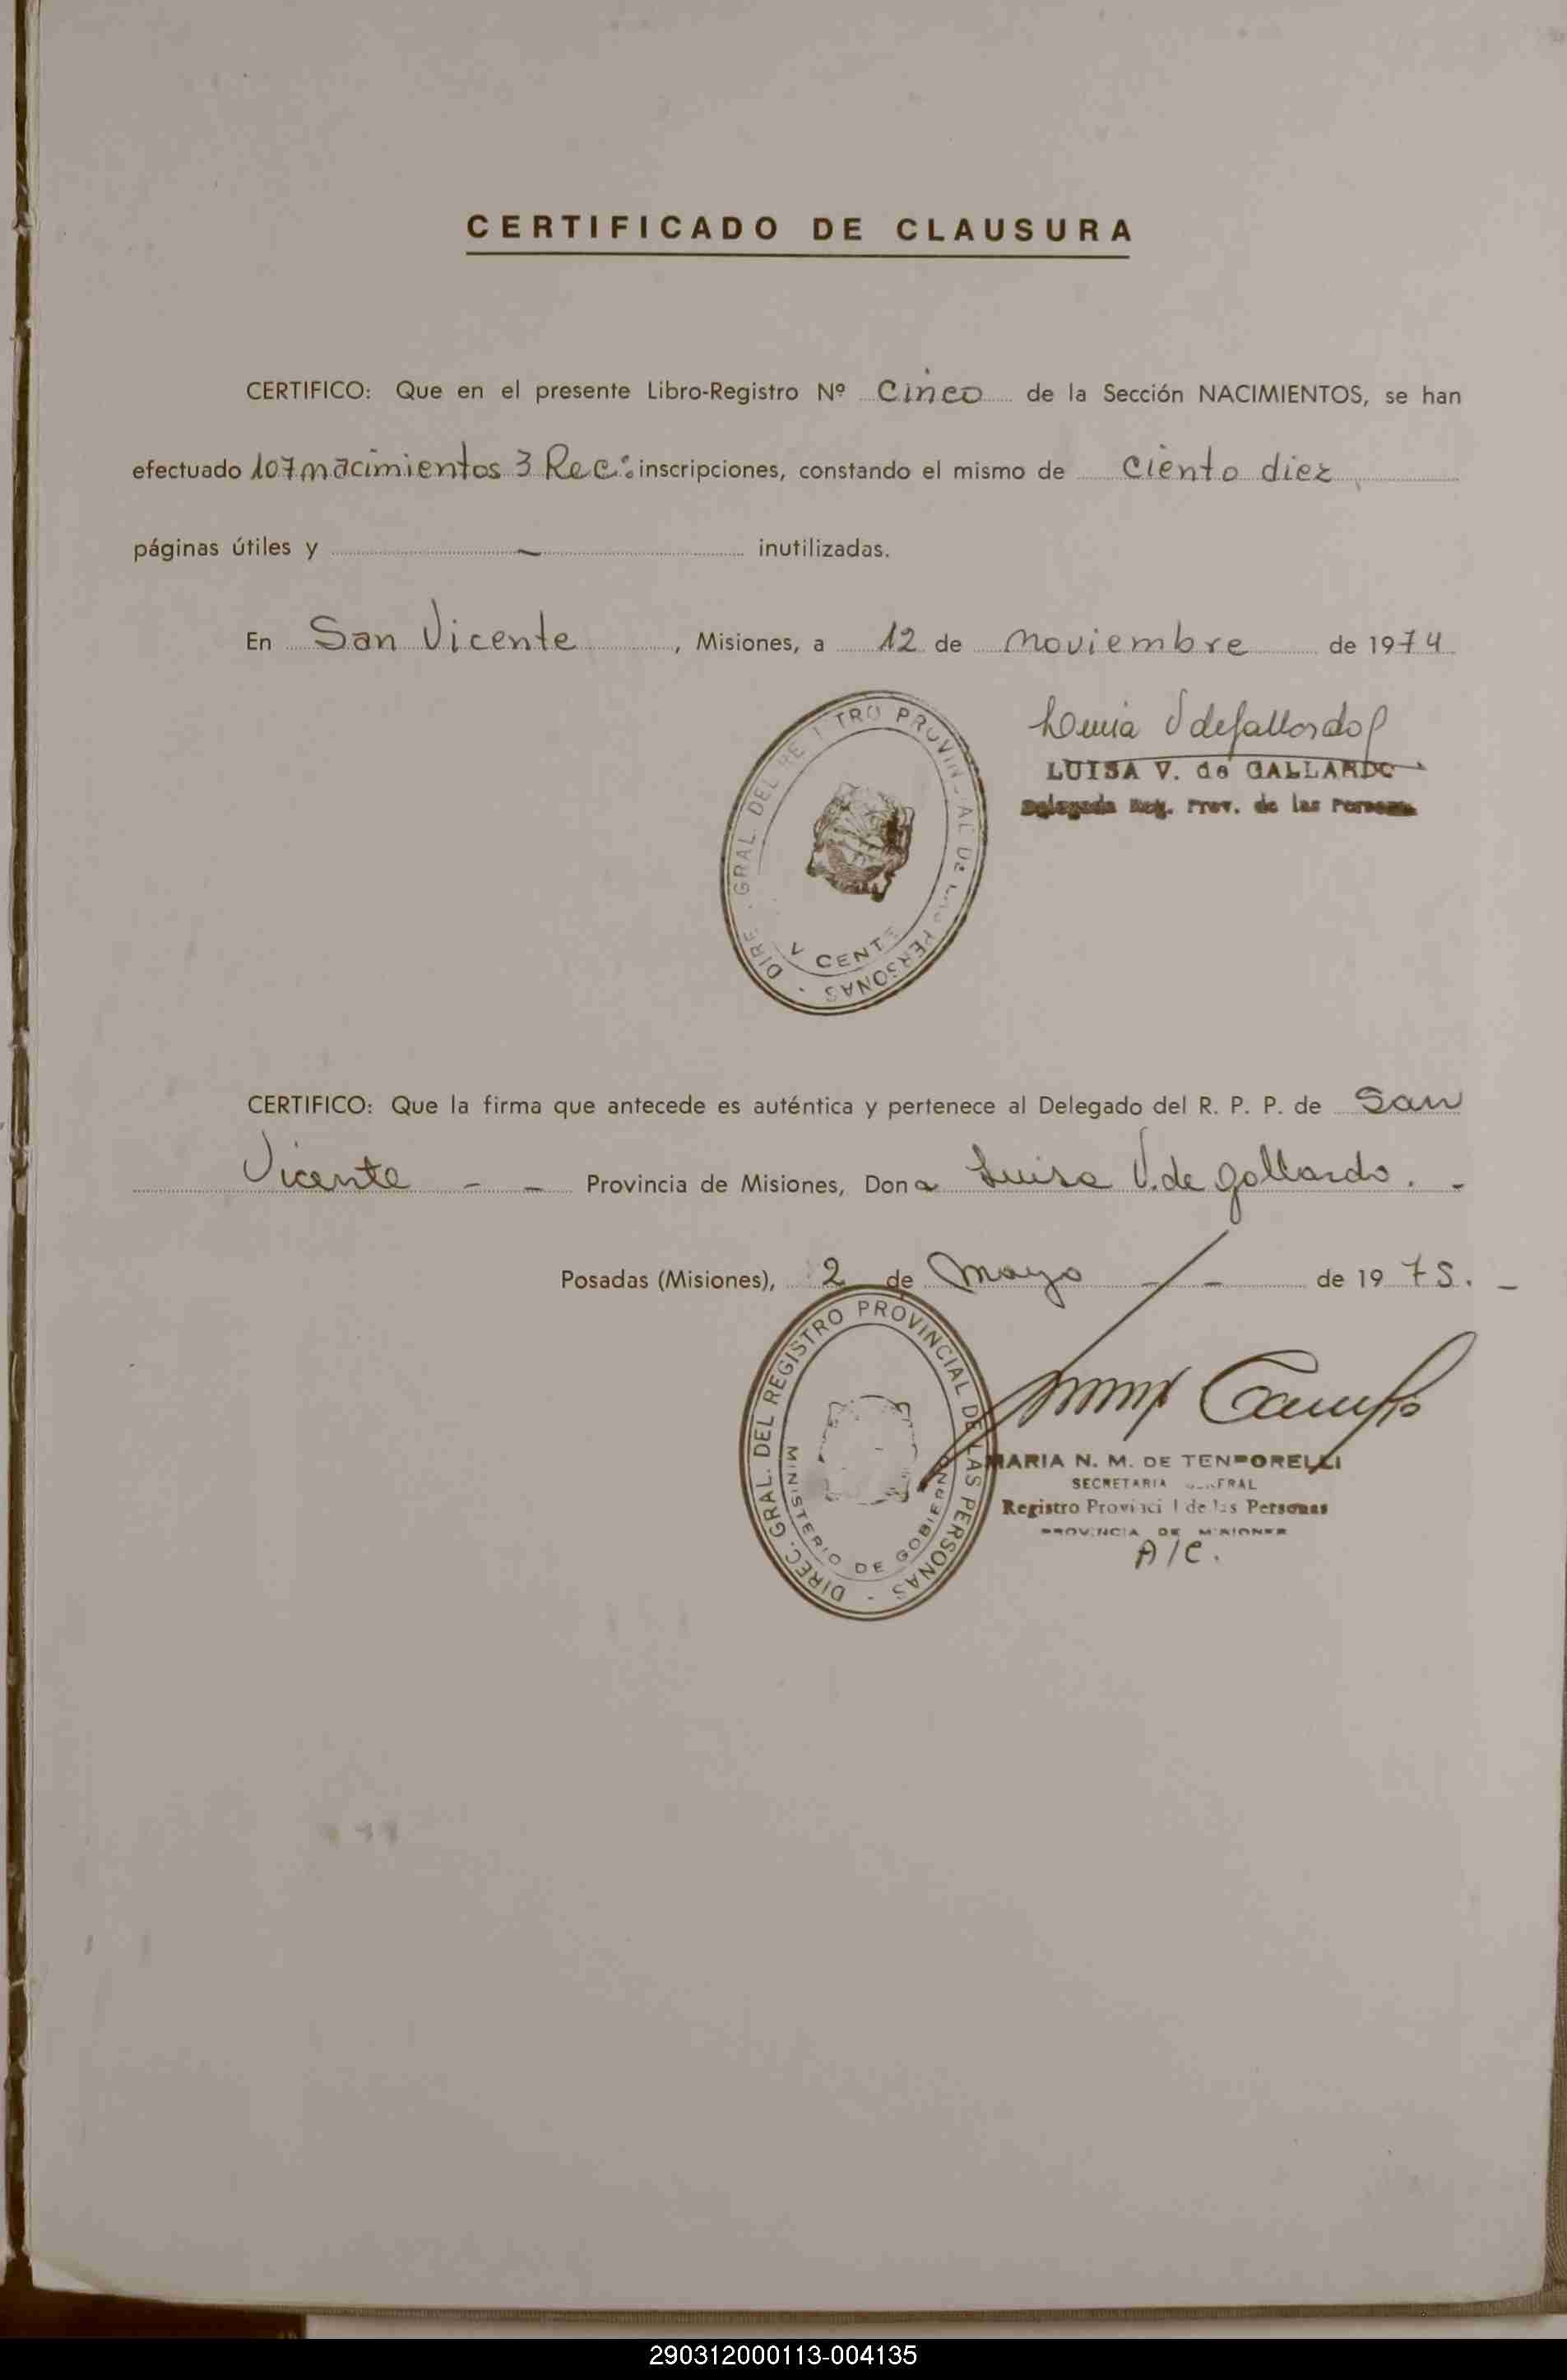 CERTIFICADO DE CLAUSURA
CERTIFICO: Que en el presente Libro-Registro Nº Cinco de la Sección NACIMIENTOS, se han
efectuado 107 nacimientos 3 Rec: inscripciones, constando el mismo de ciento diez
páginas útiles y — inutilizadas.
En San Vicente, Misiones, a 12 de noviembre de 1974
LUISA V. de GALLARDO
Delegada Reg. Prov. de las Personas
CERTIFICO: Que la firma que antecede es auténtica y pertenece al Delegado del R. P. P. de San
Vicente - - Provincia de Misiones, Dona Luisa V. de Gallardo. -
Posadas (Misiones), 2 de Mayo - - de 1975. -
DIREC. GRAL. DEL REGISTRO PROVINCIAL DE LAS PERSONAS -
MINISTERIO DE GOBIERNO
MARIA N. M. DE TEMPORELLI
SECRETARIA GENERAL
Registro Provincial de las Personas
PROVINCIA DE MISIONES
A/C.
290312000113-004135